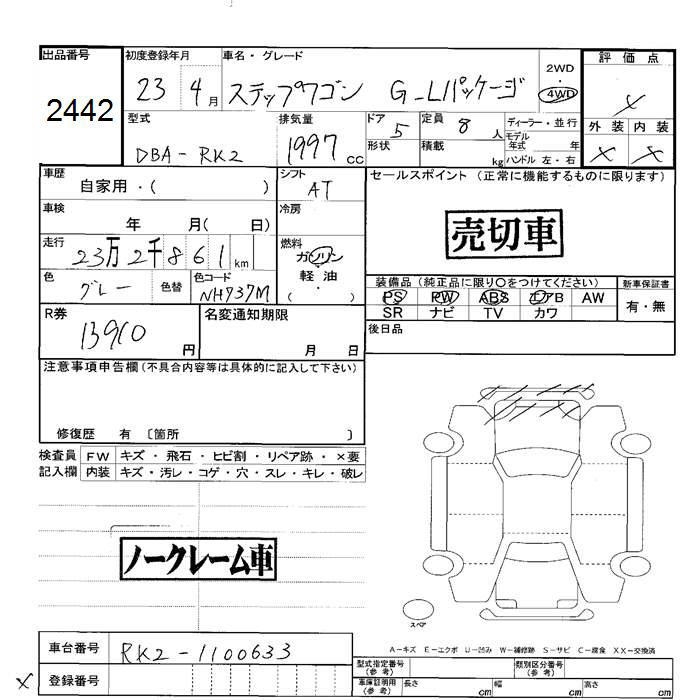 出品番号 初度登録年月 車名・グレード 2WD 評価点
2442 23 4月 ステップワゴン G-Lパッケージ ・ 4WD ×
型式 排気量 ドア 5 定員 8 人 ディーラー・並行 外装 内装
DBA-RK2 1997 CC 形状 積載 kg モデル年式 年 × ×
ハンドル 左・右
車歴 シフト セールスポイント (正常に機能するものに限ります)
自家用・( ) AT
車検 冷房
年 月( 日) 売切車
走行 23万2千861km 燃料 ガソリン
軽油
( ・ )
色 グレー 色替 色コード NH737M
装備品 (純正品に限り〇をつけてください) 新車保証書
PS PW ABS エアB AW 有・無
SR ナビ TV カワ
R券 13910 円 名変通知期限 後日品
月 日
注意事項申告欄(不具合内容等は具体的に記入して下さい)
修復歴 有 〔箇所 〕
検査員 FW キズ・飛石・ヒビ割・リペア跡・×要
記入欄 内装 キズ・汚レ・コゲ・穴・スレ・キレ・破レ
ノークレーム車
スペア
A-キズ E-エクボ U-凹み W-補修跡 S-サビ C-腐食 XX-交換済
車台番号 RK2-1100633
型式指定番号(参考) 類別区分番号(参考)
× 登録番号
車庫証明用(参考) 長さ cm 幅 cm 高さ cm